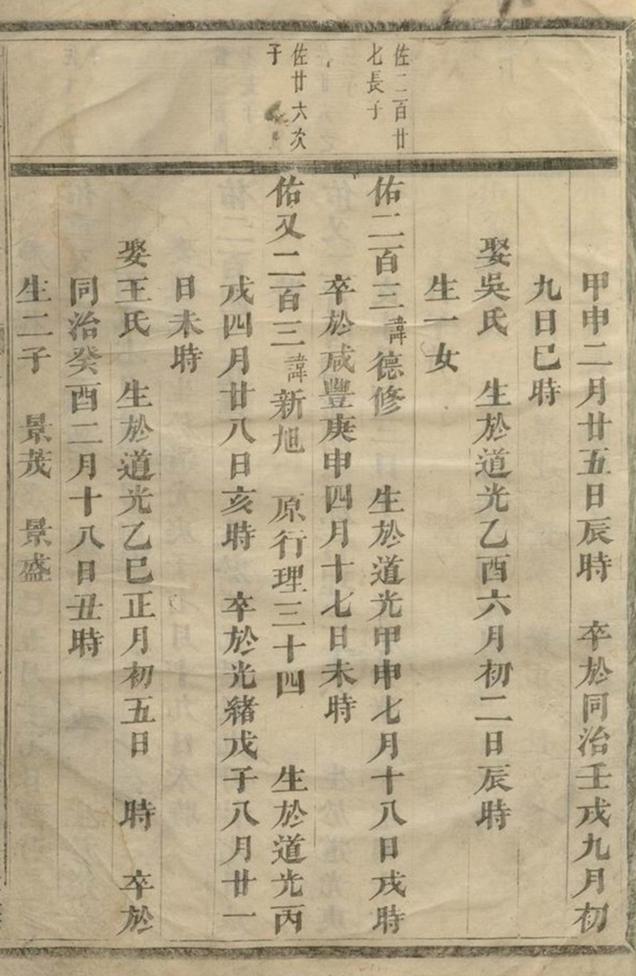 甲申二月廿五日辰時　卒於同治壬戌九月初
九日巳時
娶吳氏　生於道光乙酉六月初二日辰時
生一女
佐二百廿
七長子
佑二百三諱德修　生於道光甲申七月十八日戌時
卒於咸豐庚申四月十七日未時
佐廿六次
子
佑又二百三諱新旭　原行理三十四　生於道光丙
戌四月廿八日亥時　卒於光緒戊子八月廿一
日未時
娶王氏　生於道光乙巳正月初五日　時　卒於
同治癸酉二月十八日丑時
生二子　景茂　景盛